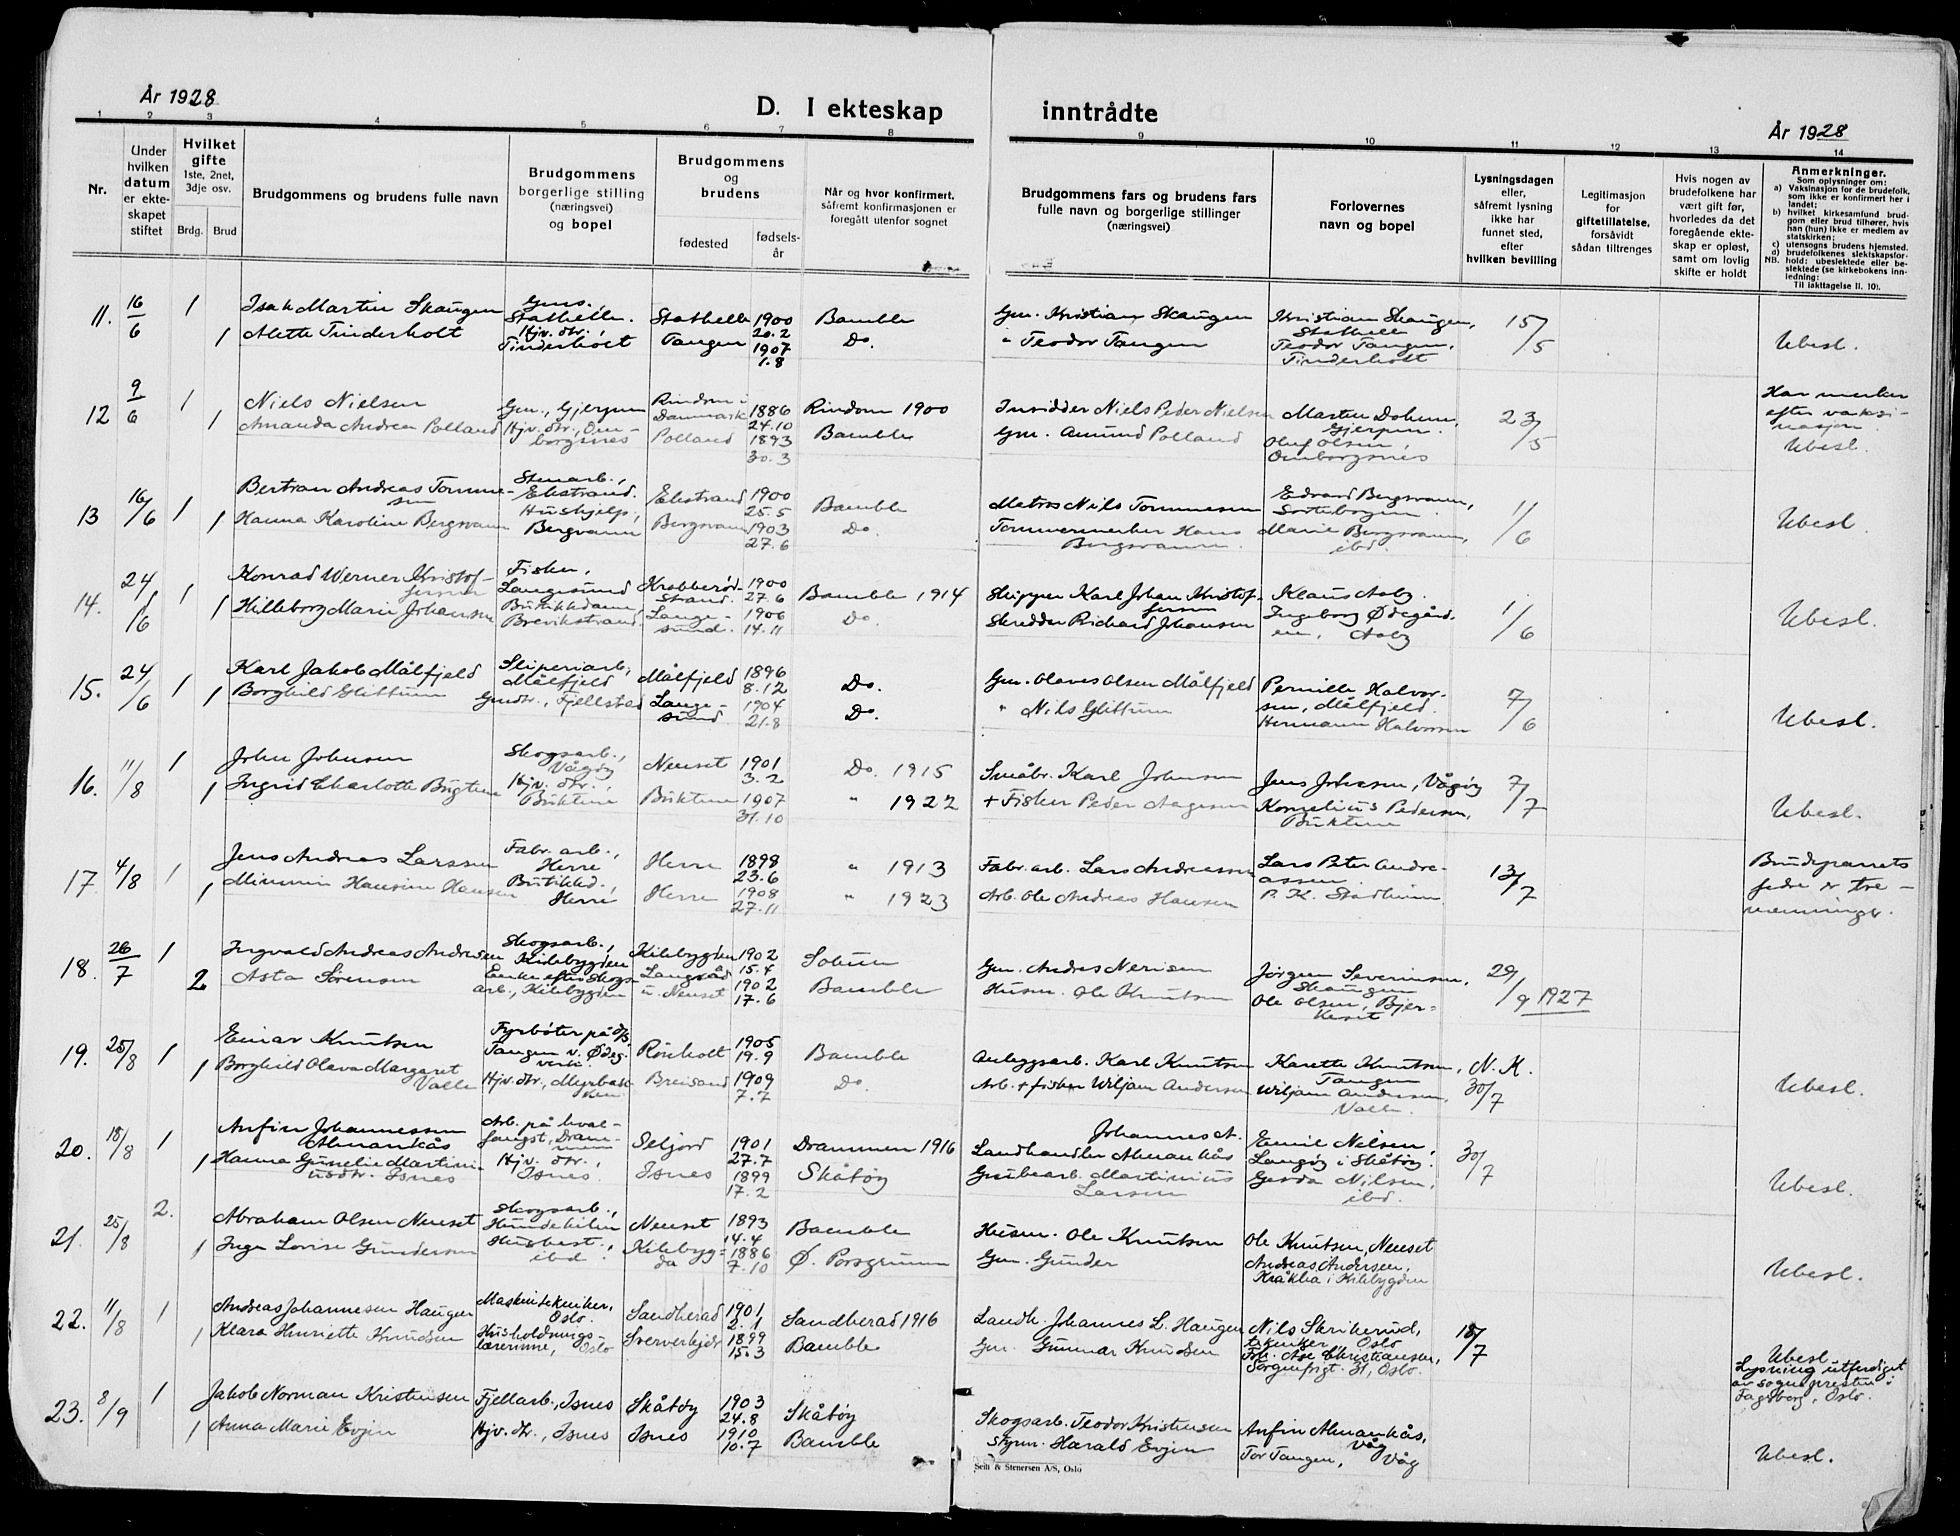 År 1928
D. I ekteskap inntrådte
År 1928
1 2 3 4 5 6 7 8 9 10 11 12 13 14
Nr.
Under hvilken datum er ekteskapet stiftet
Hvilket gifte
1ste, 2net, 3dje osv.
Brdg. Brud
Brudgommens og brudens fulle navn
Brudgommens borgerlige stilling (næringsvei) og bopel
Brudgommens og brudens
fødested
fødselsår
Når og hvor konfirmert, såfremt konfirmasjonen er foregått utenfor sognet
Brudgommens fars og brudens fars fulle navn og borgerlige stillinger (næringsvei)
Forlovernes navn og bopel
Lysningsdagen eller, såfremt lysning ikke har funnet sted, efter hvilken bevilling
Legitimasjon for giftetillatelse, forsåvidt sådan tiltrenges
Hvis nogen av brudefolkene har vært gift før, hvorledes da det foregående ekteskap er opløst, samt om lovlig skifte er holdt
Anmerkninger.
Som oplysninger om:
a) Vaksinasjon for de brudefolk, som ikke er konfirmert her i landet;
b) hvilket kirkesamfund brudgom eller brud tilhører, hvis han (hun) ikke er medlem av statskirken;
c) utensogns brudens hjemsted.
d) brudefolkenes slektskapsforhold: ubeslektede eller beslektede (se kirkebokens innledning:
NB. Til iakttagelse II. 10).
11. 16/6 1 Isak Martin Skaugen Gms. Stathelle. Stathelle 1900 20.2 Bamble Gm. Kristian Skaugen Kristian Skaugen, Stathelle 15/5
1 Alette Tinderholt Hjv. dtr., Tinderholt Tangen 1907 1.8 Do. " Teodor Tangen Teodor Tangen, Tinderholt Ubesl.
12 9/6 1 Niels Nielsen Gm., Gjerpen Rindom i Danmark 1886 24.10 Rindom 1900 Insidder Niels Peder Nielsen Martin Dolmen, Gjerpen. 23/5 Har merker efter vaksinasjon.
1 Amanda Andrea Polland Hjv. dtr., Omborgsnes Polland 1893 30.3 Bamble Gm. Amund Polland Oluf Olsen, Omborgsnes Ubesl.
13 16/6 1 Bertran Andreas Tommesen Stenarb., Ekstrand. Ekstrand 1900 25.5 Bamble Matros Nils Tommesen Edvard Bergsvann, 1/6
1 Hanna Karoline Bergsvann Hushjelp, Bergvann Bergsvann 1903 27.6 Do. Tømmermerker Hans Bergsvann. Marie Bergsvann, ibd. Ubesl.
14. 24/6 1 Konrad Werner Kristofersen Fisker, Langesund Krabberødstrand. 1900 27.6 Bamble 1914 Skipper Karl Johan Kristofersen Klaus Aaby. 1/6
1 Hilleborg Marie Johansen Butikkdame, Brevikstrand Langesund. 1906 14.11 Do. Skredder Richard Johansen Ingeborg Ødegården, Aaby Ubesl.
15. 24/6 1 Karl Jakob Målfjeld Sliperiarb., Målfjeld Målfjeld 1896 8.12 Do. Gm. Olaves Olsen Målfjeld Pernille Halvorsen, Målfjeld. 7/6
1 Borghild Glittum Gmdtr., Fjellstad Langesund 1904 21.8 Do. " Nils Glittum Hermann Halvorsen Ubesl.
16. 11/8 1 John Johnsen Skogsarb., Vågøy Neuset 1901 3.2 Do. 1915 Småbr. Karl Johnsen Jens Johnsen, Vågøy 7/7
1 Ingrid Charlotte Bugtene Hjv. dtr., Buktene Buktene 1907 31.10 " 1922 + Fisker Peder Aagesen Kornelius Pedersen, Buktene Ubesl.
17. 4/8 1 Jens Andreas Larssen Fabr. arb., Herre Herre 1898 23.6 " 1913 Fabr. arb. Lars Andreassen Lars Peter Andreassen 13/7 Brudeparrets fedre er tremenninger.
1 Mimmi Hansine Hansen Butikkd., Herre Herre 1908 27.11 " 1923 Arb. Ole Andreas Hansen P. K. Stadheim
18. 26/7 1 Ingvald Andreas Andresen Skogsarb., Kilebygden Kilebygden 1902 15.4 Solum Gm. Andres Nerisen Jørgen Severinsen, Skaugen 29/9 1927
2 Asta Sørensen Enke efter Skogsarb., Kilebygden Langgåd u. Neuset 1902 17.6 Bamble Husm. Ole Knutsen Ole Olsen, Bjerkeset
19. 25/8 1 Einar Knutsen Fyrbøter på d/s Tangen v. Ødeg. verk. Rønholt 1905 19.9 Bamble Anleggsarb. Karl Knutsen Karette Knutsen, Tangen N. K. 30/7
1 Borghild Olava Margaret Valle Hjv. dtr., Myrbakken Breisand 1909 7.7 Do. Arb. + fisker Wiljam Andersen Wiljam Andersen, Valle. Ubesl.
20. 18/8 1 Anfin Johannessen Almankås Arb. på hvalfangst, Drammen Seljord 1901 27.7 Drammen 1916 Landhandler Johannes A. Almankås Emil Nilsen, Langøy i Skåtøy. 30/7
1 Hanna Gunelie Martiniusdtr. Isnes Hjv. dtr., Isnes. Isnes 1899 17.2 Skåtøy Grubearb. Martinius Larsen Gerda Nilsen, ibd. Ubesl.
21. 25/8 2. Abraham Olsen Neuset Skogsarb., Hundekilen Neuset 1893 14.4 Bamble Husm. Ole Knutsen Ole Knutsen, Neuset
1 Inga Lovise Gundersen Husbest., ibd Kilebygda 1886 7.10 Ø. Porsgrunn Gm. Gunder Andreas Andersen, Kråklia i Kilebygden Ubesl.
22. 11/8 1 Andreas Johannesen Haugen Maskintekniker, Oslo. Sandherad 1901 2.1 Sandherad 1916 Landh. Johannes L. Haugen Nils Skrikerud, tekniker, Oslo 18/7
1 Klara Henriette Knudsen Husholdningslærerinne, Oslo 1899 15.3 Bamble Gm. Gunnar Knudsen Frk. Åse Christiansen, Sorgenfrigt. 31, Oslo. Ubesl. Lysning utferdiget av sognepresten i Fagerborg, Oslo.
23. 8/9 1 Jakob Norman Kristensen Fjellarb., Isnes Skåtøy 1903 24.8 Skåtøy Skogsarb. Teodor Kristensen Anfin Almankås, Våg
1 Anna Marie Evjen Hjv. dtr., Isnes Isnes 1910 10.7 Bamble Styrm. Harald Evjen Tor Tangen, Våg Ubesl.
Sem & Stenersen A/S, Oslo